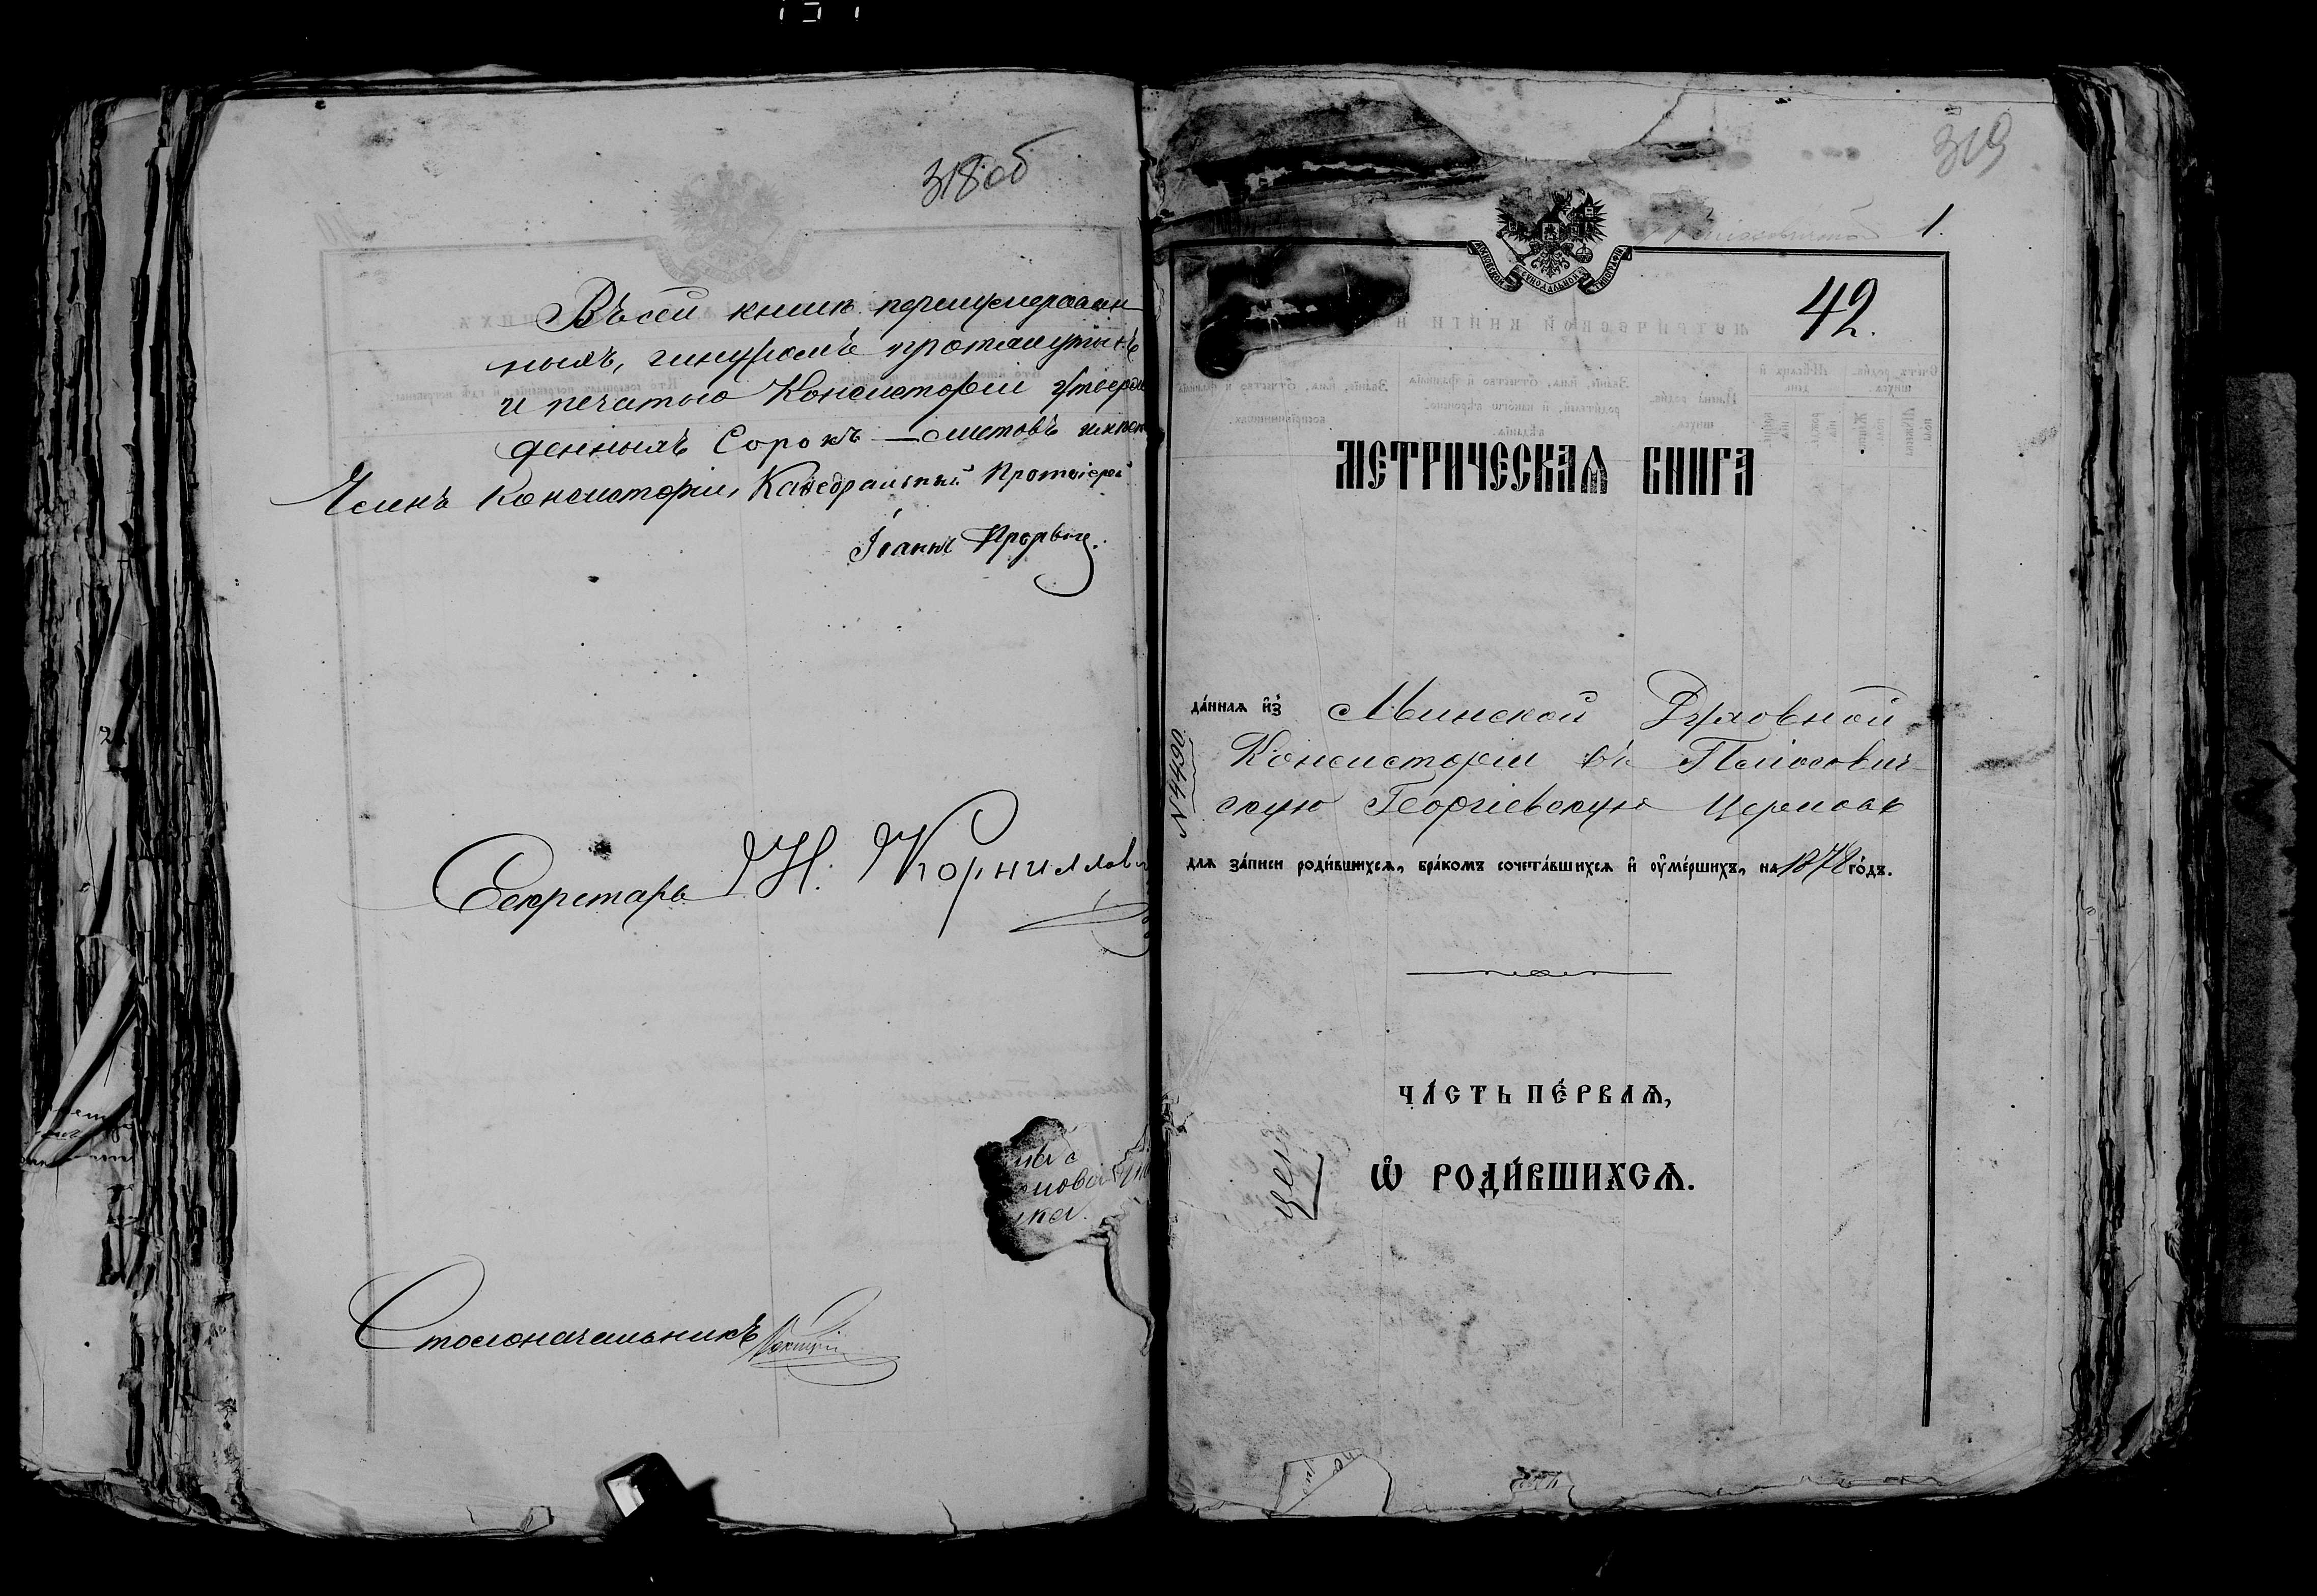 318об
Въ сей книгѣ перенумерован-
ныхъ, шнуромъ протянутыхъ
и печатью Консисторіи утверж
денныхъ Сорокъ — листовъ
Членъ Консисторіи, Каѳедральный Протоіерей
Іоаннъ
Секретарь Н. Корнилов
Столоначальникъ
319
1.
42.
МЕТРИЧЕСКАѦ КНИГА
да́ннаѧ и҆з̾ Минской Духовной
Консисторіи въ
скую Георгіевскую Церковь
№ 4490
длѧ за́писи роди́вшихсѧ, бра́комъ сочета́вшихсѧ и҆ ᲂу҆ме́ршихъ, на 1878 го́дъ.
ЧА́СТЬ ПЕ́РВАѦ,
Ѽ РОДИ́ВШИХСѦ.